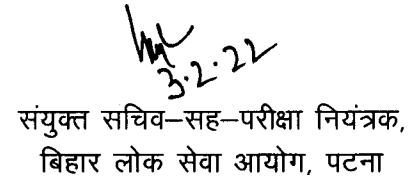 3.2.22
संयुक्त सचिव–सह–परीक्षा नियंत्रक,
बिहार लोक सेवा आयोग, पटना